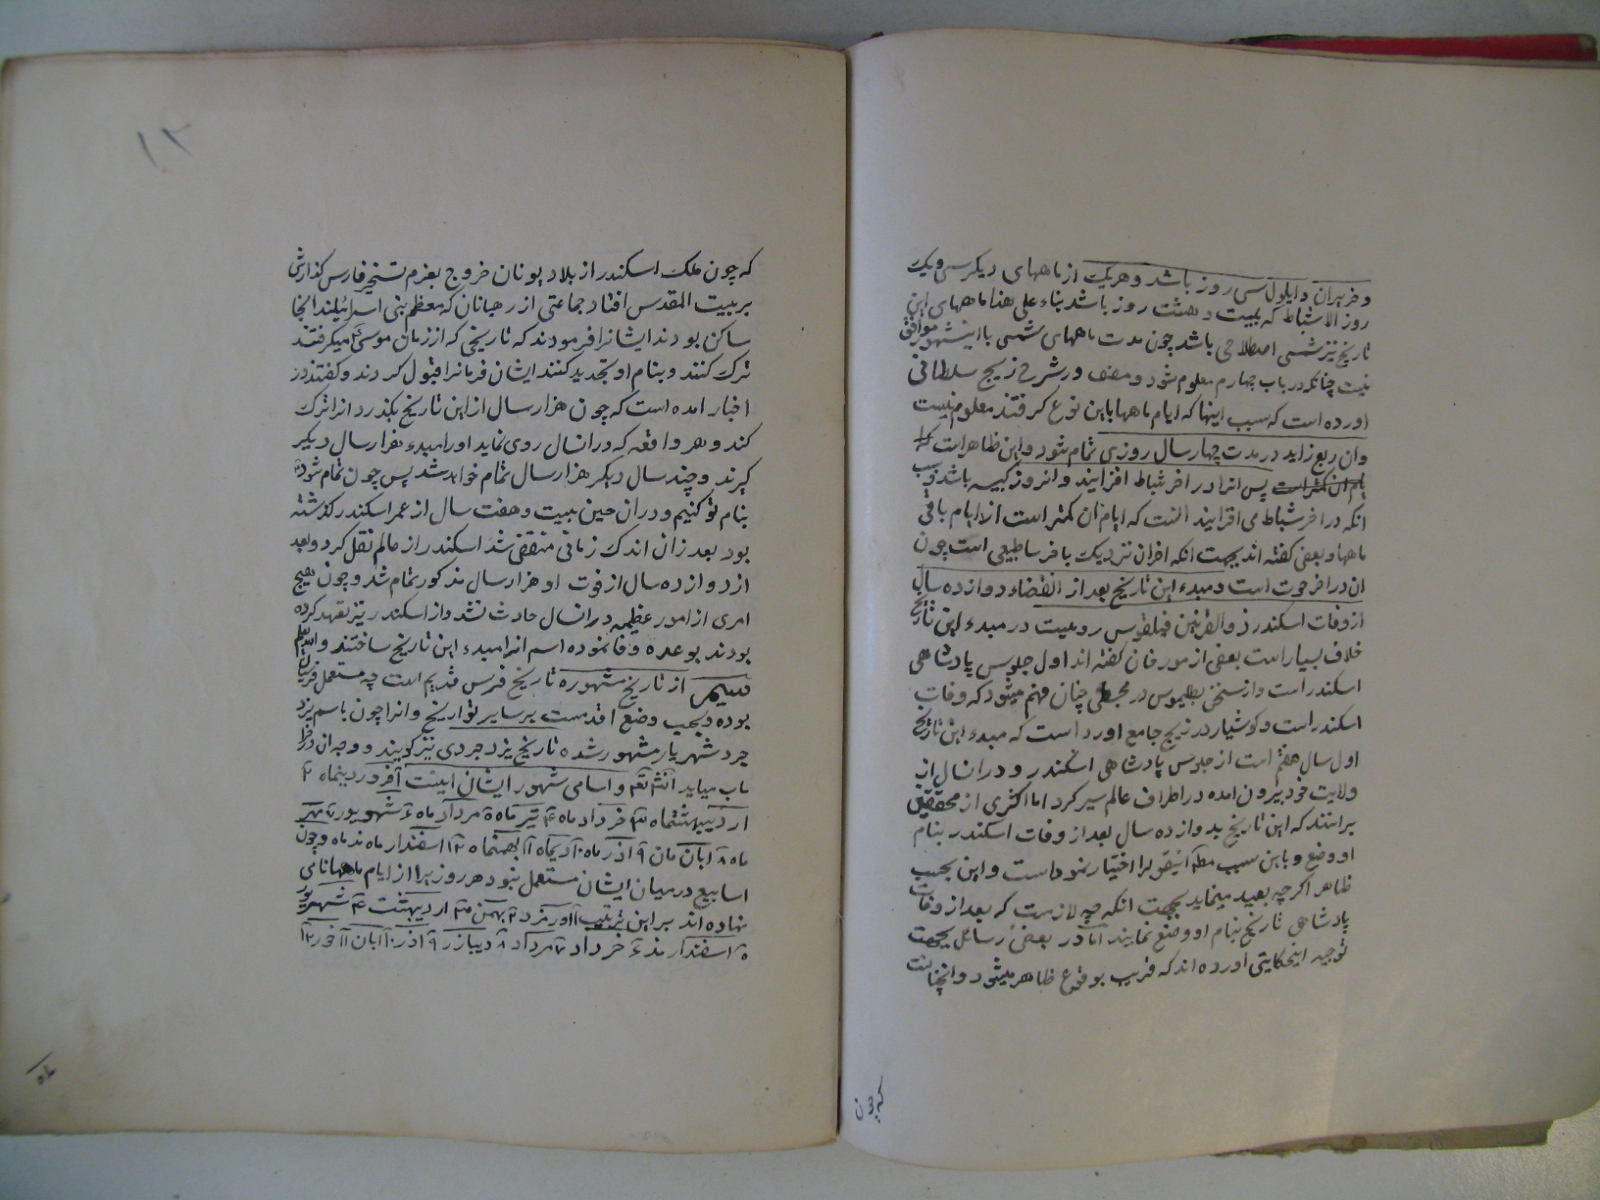 و خریران و ایلول سی روز باشد و هریک از ماههای دیکر سی و یک
روز الا شباط که بیست و هشت روز باشد بناء علی هذا ماههای این
تاریخ نیز شمسی اصطلاحی باشد چون مدت ماههای شمسی با این شهور موافق
نیست چنانکه در باب چهارم معلوم شود و مصنف در شرح زیج سلطانی
اورده است که سبب اینها که ایام ماهها باین نوع کرفتند معلوم نیست
وان ربع زاید در مدت چهار سال روزی تمام شود و این ظاهر است
پس انرا در اخر شباط افزایند و انروز کبیسه باشد و سبب
انکه در اخر شباط می افزایند انست که ایام ان کمتر است از ایام باقی
ماهها و بعضی کفته اند بجهت انکه اخران نزدیک باخر سا طبیعی است چون
ان در اخر حوت است و مبدء این تاریخ بعد از انقضاء دوازده سال
از وفات اسکندر ذو القرنین فیلقوس رومیست در مبدء این تاریخ
خلاف بسیار است بعضی از مورخان کفته اند اول جلوس پادشاهی
اسکندر است و از سخن بطلمیوس در مجسطی چنان فهم میشود که وفات
اسکندر است و کوشیار در زیج جامع اورد است که مبدء این تاریخ
اول سال هفتم است از جلوس پادشاهی اسکندر و در انسال از
ولایت خود بیرون امده در اطراف عالم سیر کرد اما اکثری از محققین
برانند که این تاریخ بدوازده سال بعد از وفات اسکندر بنام
او وضع و باین سبب مطه اینقول را اختیار نموداست و این بحسب
ظاهر اکرچه بعید مینماید بجهت انکه چه لازمست که بعد از وفات
پادشاهی تاریخ بنام او وضع نمایند اما در بعضی رسائل بجهت
توجیه اینحکایتی اورده اند که قریب بوقوع ظاهر میشود و انچنانست
که چون
۱۲
که چون ملک اسکندر از بلاد یونان خروج بعزم تسخیر فارس کذارش
بر بیت المقدس افتاد جماعتی از رهبانان که معظم بنی اسرائیلند انجا
ساکن بودند ایشانرا فرمودند که تاریخی که از زمان موسی میکرفتند
ترک کنند و بنام او تجدید کنند ایشان فرمانرا قبول کردند و کفتند در
اخبار امده است که چون هزار سال از این تاریخ بکذرد انرا ترک
کند و هر واقعه که در انسال روی نماید او را مبدء هزار سال دیکر
کیرند و چند سال دیکر هزار سال تمام خواهد شد پس چون تمام شود
بنام تو کنیم و در ان حین بیست و هفت سال از عمر اسکندر کذشته
بود بعد زان اندک زمانی منقضی شد اسکندر از عالم نقل کرد و بعد
از دوازده سال از فوت او هزار سال مذکور تمام شد و چون هیچ
امری از امور عظیمه در انسال حادث نشد و از اسکندر نیز تعهد کرده
بودند بوعده وفا نموده اسم انرا مبدء این تاریخ ساختند
از تاریخ مشهوره تاریخ فرس قدیم است چه مستعمل فرسیان
بوده و بحسب وضع اقدمست بر سایر تواریخ و انرا چون باسم یزد
جرد شهریار مشهور شده تاریخ یزدجردی نیز کویند و وجه ان در
باب میاید انشتعم و اسامی شهور ایشان اینست افروردینماه ۲
اردیبهشتماه ۳ خرداد ماه ۴ تیر ماه ۵ مرداد ماه ۶ شهریور ۷ مهر
ماه ۸ ابان ماه ۹ اذر ماه ۱۰ دیماه ۱۱ بهمنماه ۱۲ اسفندار ماه مذ ماه و چون
اسابیع در میان ایشان مستعمل نبود هر روز را از ایام ماهها نامی
نهاده اند بر این ترتیب ۱ اورمزد ۲ بهمن ۳ اردیبهشت ۴ شهریور
۵ اسفندارمذ ۶ خرداد ۷ مرداد ۸ دیباذر ۹ اذر ۱۰ ابان ۱۱ خور ۱۲
ماه